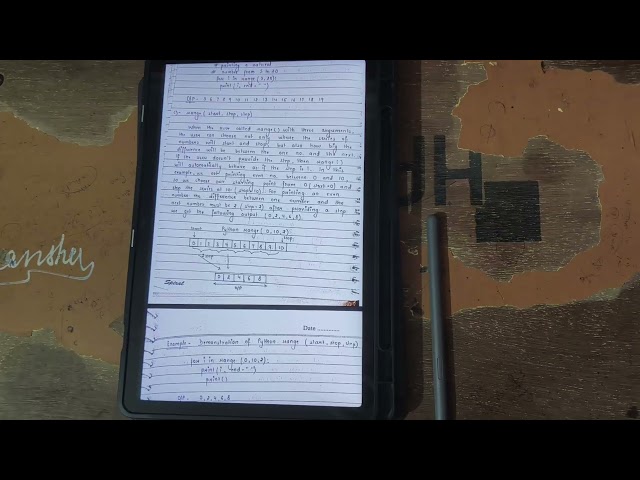 # printing a natural
# number from 3 to 20
for i in range (3, 20):
print (i, end = " ")
O/P - 3 4 5 6 7 8 9 10 11 12 13 14 15 16 17 18 19
range ( start, stop, step)
when the user called range ( ) with three arguments,
the user can choose not only where the series of
numbers will start and stop, but also how big the
difference will be between the one no. and the next.
If the user doesn't provide the step, then range ( )
will automatically behave as if the step is 1. In this
example we are printing even no. between 0 and 10,
so we choose our starting point from 0 (start=0) and
stop the series at 10 (stop=10). For printing an even
number the difference between one number and the
next number must be 2 (step=2) after providing a step
we get the following output (0, 2, 4, 6, 8).
Python range ( 0, 10, 2)
start
stop
0 1 2 3 4 5 6 7 8 9 10
step
0 2 4 6 8
O/P
Spiral
Date ............
Example - Demonstration of Python range (start, stop, step)
for i in range (0, 10, 2):
print (i, end = " ")
print ()
O/P. 0, 2, 4, 6, 8
DH